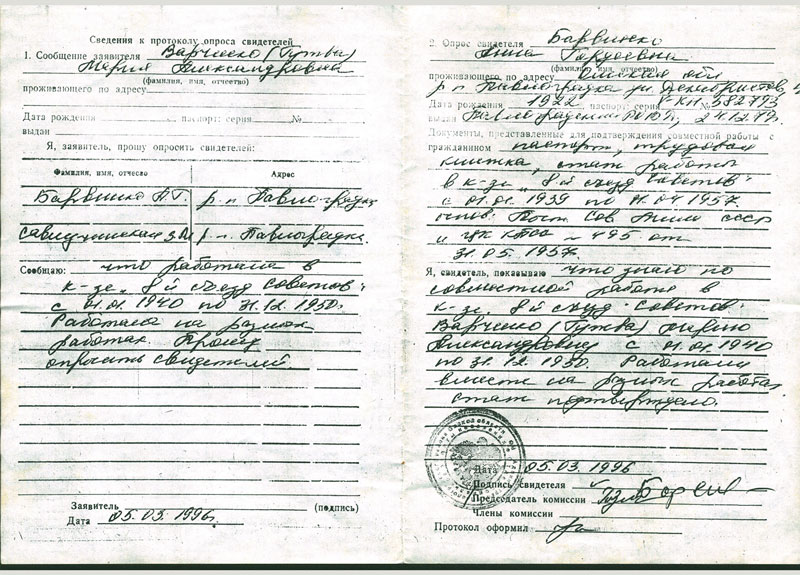 Сведения к протоколу опроса свидетелей
1. Сообщение заявителя Варченко (Гутва)
Мария Александровна
(фамилия, имя, отчество)
проживающего по адресу
Дата рождения паспорт: серия №
выдан
Я, заявитель, прошу опросить свидетелей:
Фамилия, имя, отчество Адрес
Барвинко А.Г. р-п Павлоградка
р-п Павлоградка.
Сообщаю: что работала в
к-зе „8й съезд Советов"
с 01.01.1940 по 31.12.1950.
Работала на разных
работах. Прошу
опросить свидетелей.
Заявитель (подпись)
Дата 05.03.1996
2. Опрос свидетеля Барвинко
Анна
(фамилия, имя, отчество)
проживающего по адресу Омская обл
р-п Павлоградка ул. Декабристов,
Дата рождения 1922 паспорт: серия № 582793
выдан Павлоградским РОВД, 24.12.79.
Документы, представленные для подтверждения совместной работы с
гражданином паспорт, трудовая
книжка, стаж работы
в к-зе „8й съезд Советов"
с 01.01.1939 по 04.1957.
Пост. Сов СССР
и № 495 от
31.05.1957.
Я, свидетель, показываю что знаю по
совместной работе в
к-зе „8й съезд Советов"
Варченко (Гутва) Марию
Александровну с 01.01.1940
по 31.12.1950. Работали
вместе на разных работах
стаж подтверждаю.
Дата 05.03.1996
Подпись свидетеля
Председатель комиссии
Члены комиссии
Протокол оформил